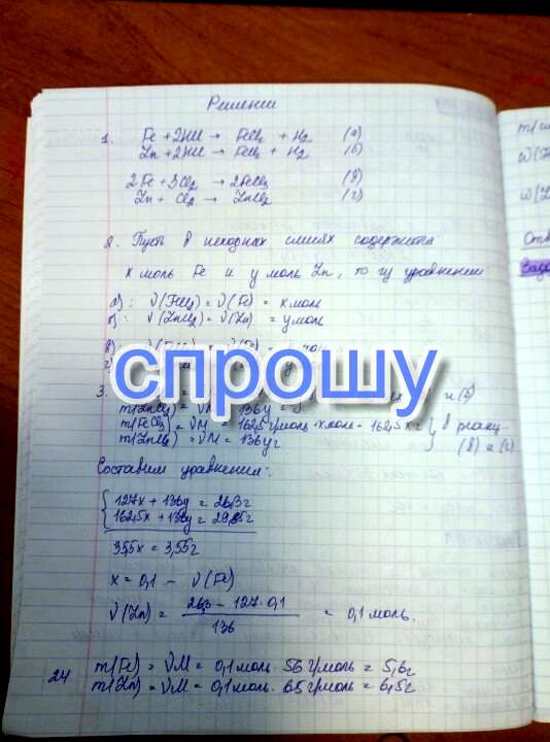 Решение
1. Fe + 2HCl → FeCl₂ + H₂ (а)
Zn + 2HCl → FeCl₂ + H₂ (б)
2Fe + 3Cl₂ → 2FeCl₃ (в)
Zn + Cl₂ → ZnCl₂ (г)
2. Пусть в исходных смесях содержится
x моль Fe и y моль Zn, то из уравнении
а): ν(FeCl₂) = ν(Fe) = x моль
б): ν(ZnCl₂) = ν(Zn) = y моль
спрошу
3.
m(ZnCl₂) = νM = 136y =
m(FeCl₃) = νM = 162,5 г/моль · x моль = 162,5x г } в реак-
m(ZnCl₂) = νM = 136y г (в) и (г)
Составим уравнения:
{ 127x + 136y = 26,3г
162,5x + 136y = 29,85г
35,5x = 3,55г
x = 0,1 – ν(Fe)
ν(Zn) = (26,3 – 127·0,1) / 136 = 0,1 моль.
m(Fe) = νM = 0,1 моль · 56 г/моль = 5,6г
24 m(Zn) = νM = 0,1 моль · 65 г/моль = 6,5г